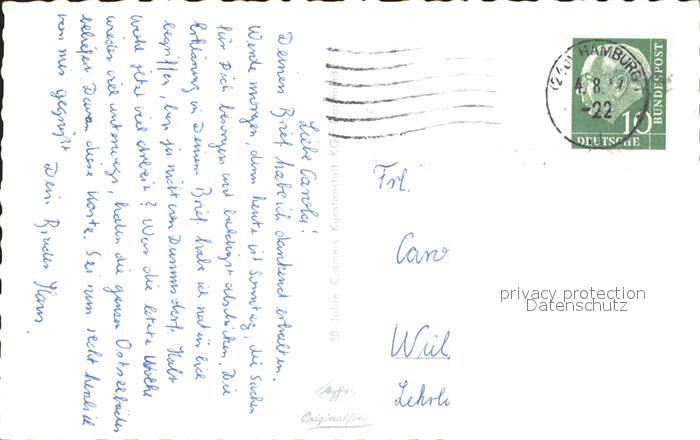 Liebe Carola!
Deinen Brief habe ich dankend erhalten.
Werde morgen, denn heute ist Sonntag, die Sachen
für Dich besorgen und baldigst abschicken. Die
Erklärung in Deinem Brief habe ich natürlich
begriffen, bin ja nicht von Dummsdorf. Habt
Ihr jetzt viel Arbeit? War die letzte Woche
wieder viel unterwegs, habe die ganzen Ostseebäder
beliefert. Davon diese Karte. Sei nun recht herzlich
von mir gegrüßt Dein Bruder Hans.
50 Jahre Cramers Kunstanstalt KG
Originalfoto
HAMBURG
-22
10
DEUTSCHE
BUNDESPOST
Frl.
Caro
privacy protection
Datenschutz